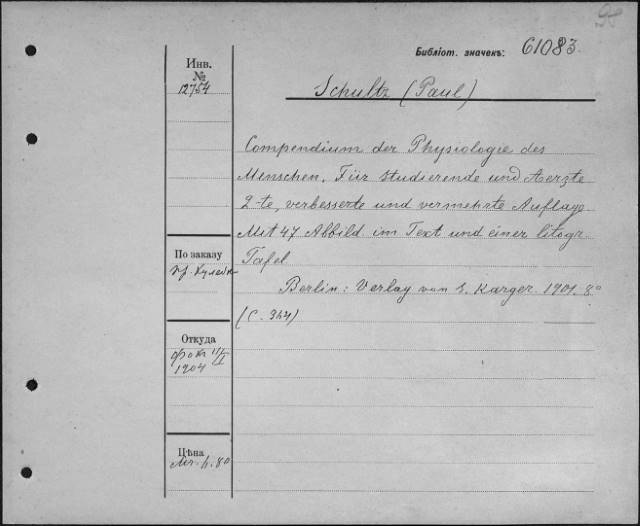 Библіот. значекъ: 61083.
Инв.
№
12754
Schultz (Paul)
Compendium der Physiologie des
Menschen. Für Studierende und Aerzte
2-te, verbesserte und vermehrte Auflage
Mit 47 Abbild im Text und einer litogr.
Tafel
Berlin: Verlag von S. Karger. 1901. 8°
(С. 344)
По заказу
Откуда
1904
Цѣна